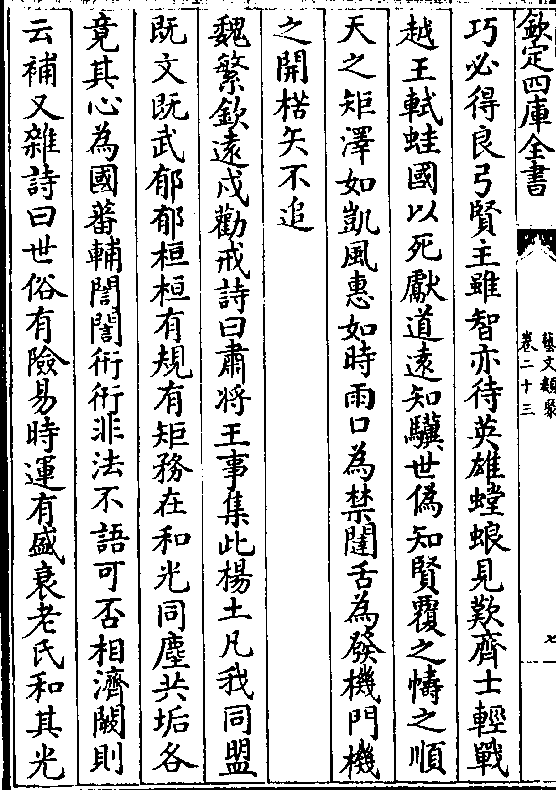 欽定四庫全書
藝文類聚
卷二十三
七
巧必得良弓賢主雖智亦待英雄螳蜋見歎齊士輕戰
越王軾蛙國以死獻道遠知驥世偽知賢覆之幬之順
天之矩澤如凱風惠如時雨口為禁闥舌為發機門機
之開楛矢不追
魏繁欽遠戍勸戒詩曰肅將王事集此楊土凡我同盟
既文既武郁郁桓桓有規有矩務在和光同塵共垢各
竟其心為國蕃輔誾誾衎衎非法不語可否相濟闕則
云補又雜詩曰世俗有險易時運有盛衰老氏和其光